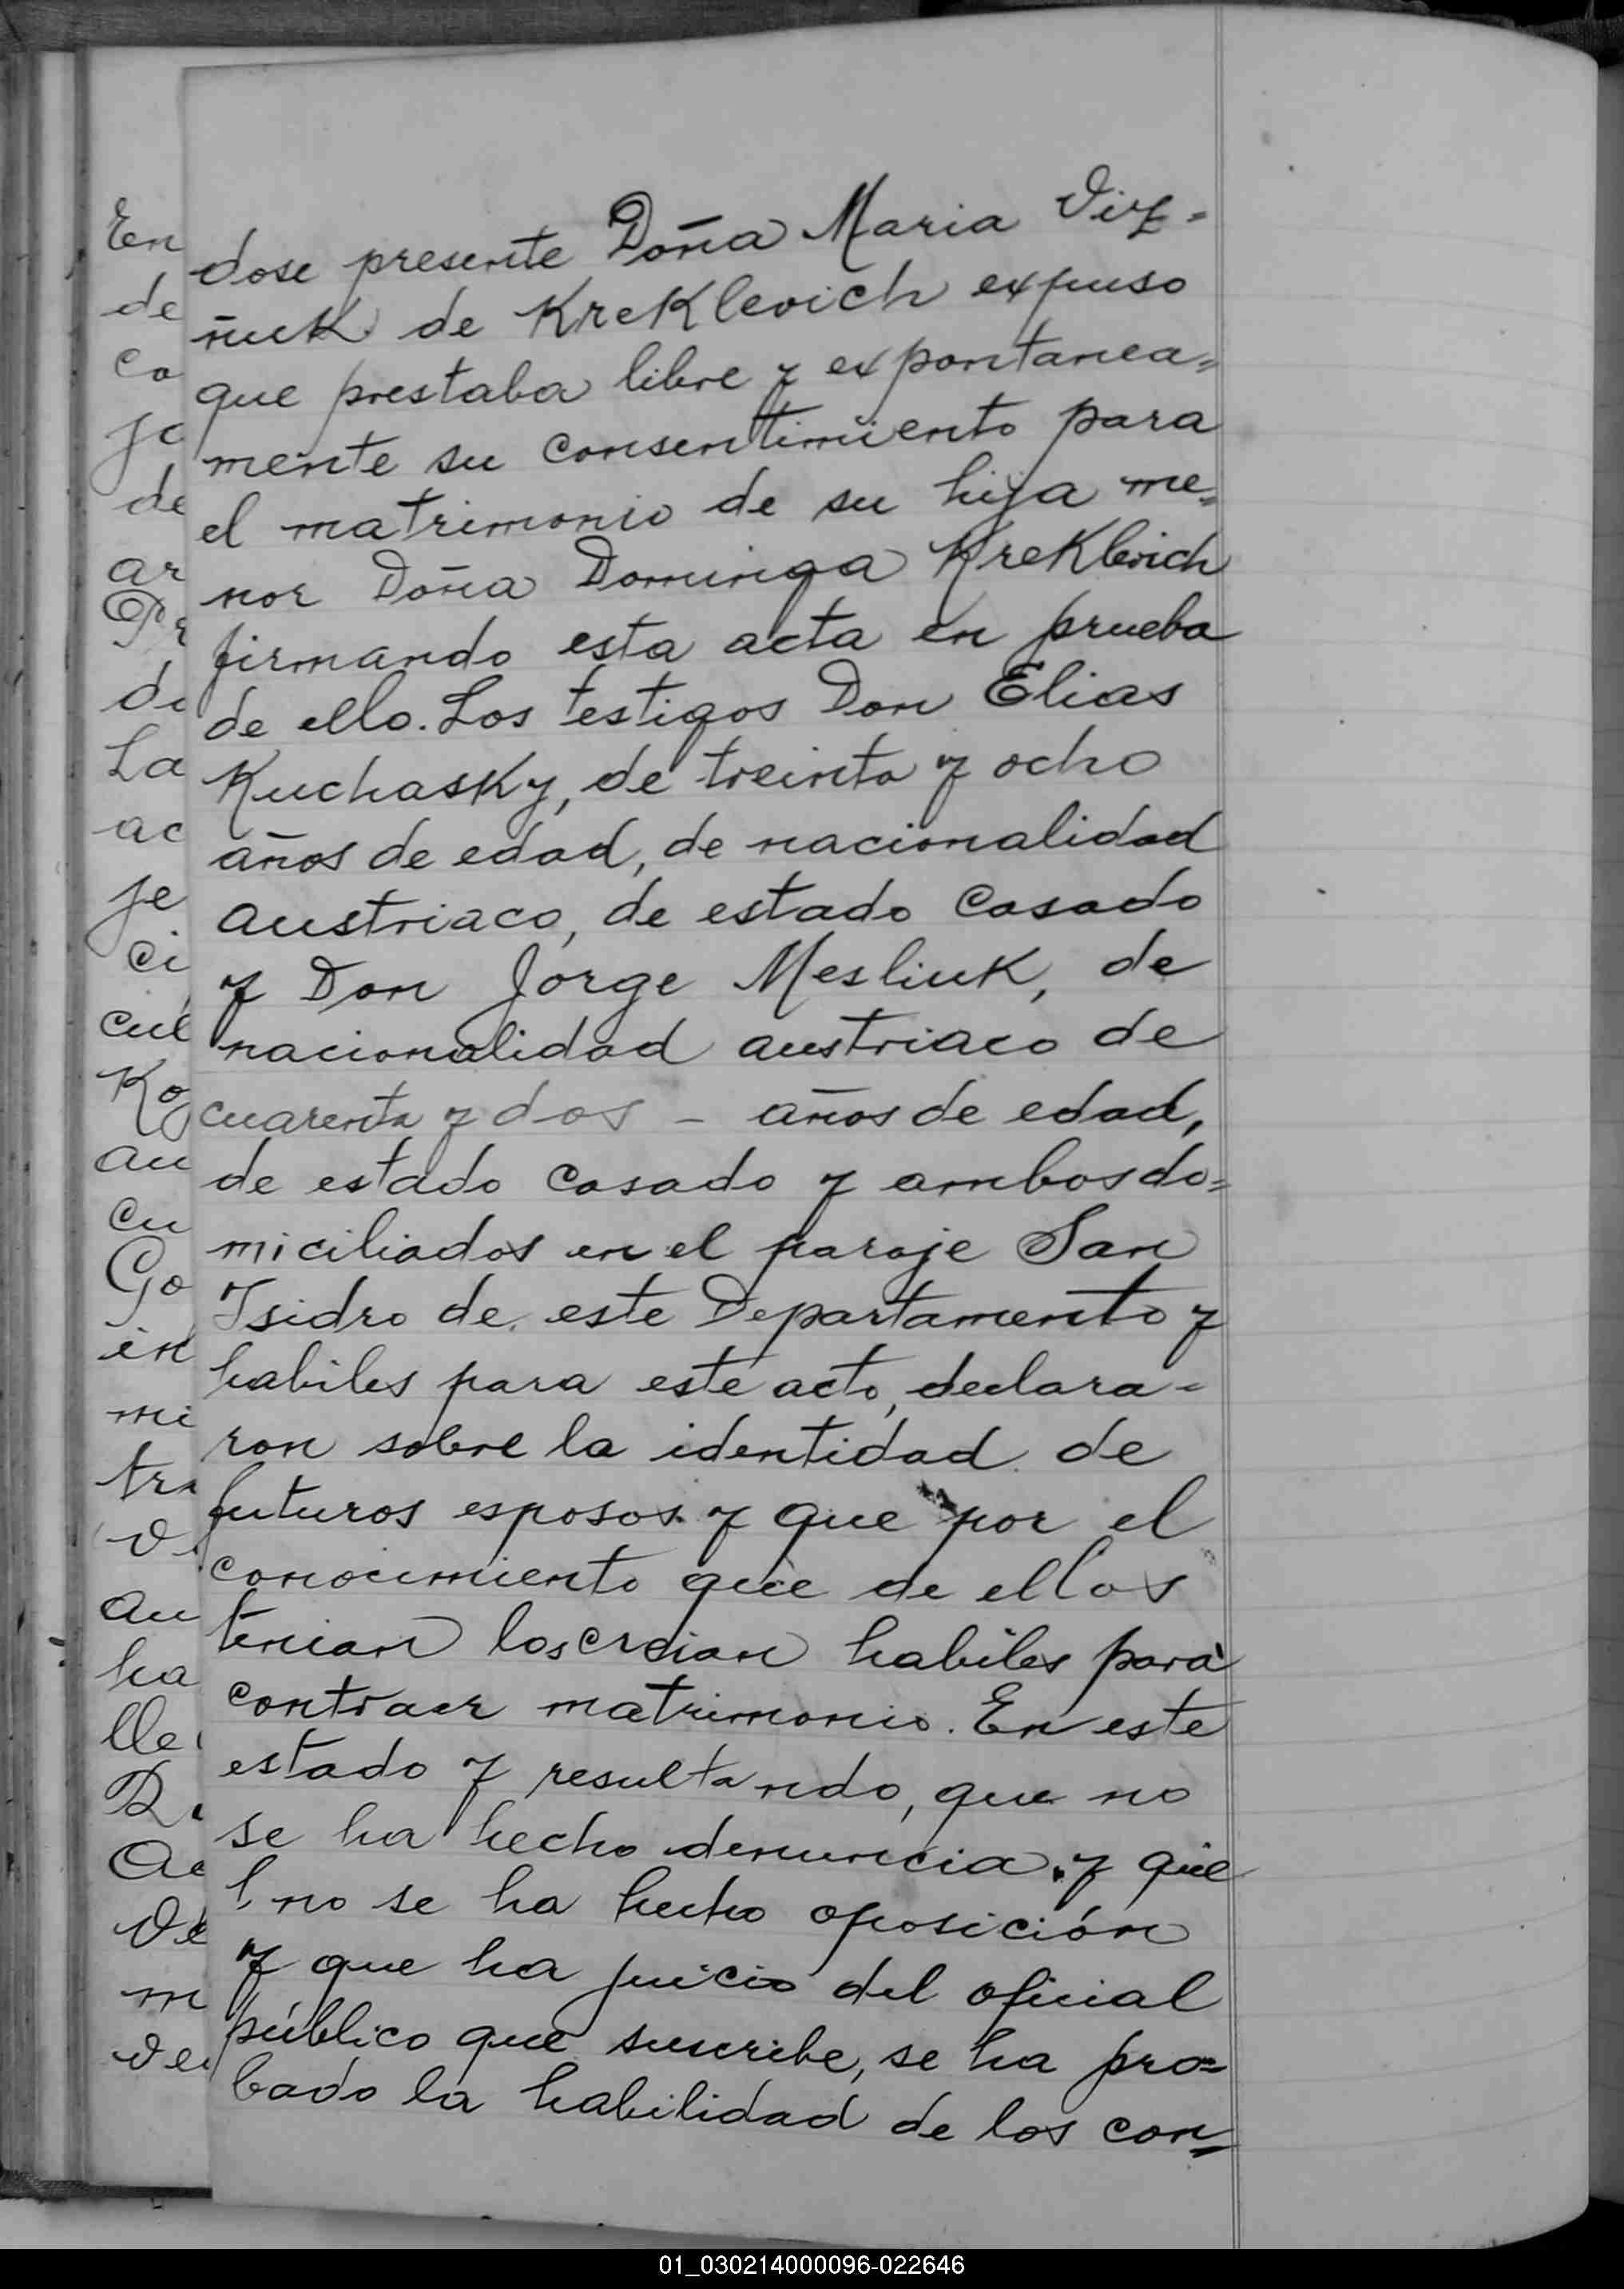 dose presente Doña Maria Viz-
ñuk de Kreklevich expuso
que prestaba libre y expontanea=
mente su consentimiento para
el matrimonio de su hija me=
nor Doña Dominga Kreklevich
firmando esta acta en prueba
de ello. Los testigos Don Elias
Kuchasky, de treinta y ocho
años de edad, de nacionalidad
austriaco, de estado casado
y Don Jorge Mesliuk, de
nacionalidad austriaco de
cuarenta y dos - años de edad,
de estado casado y ambos do=
miciliados en el paraje San
Isidro de este Departamento y
habiles para este acto, declara-
ron sobre la identidad de
futuros esposos y que por el
conocimiento que de ellos
tenian los creian habiles para
contraer matrimonio. En este
estado y resultando, que no
se ha hecho denuncia y que
no se ha hecho oposición
y que ha juicio del oficial
público que suscribe, se ha pro=
bado la habilidad de los con=
En
de
co
jo
de
ar
Pr
de
La
ac
je
ci
cul
Ko
au
cu
Go
in
mi
tra
v
au
ha
lle
R
Ac
Ve
m
ve
01_030214000096-022646